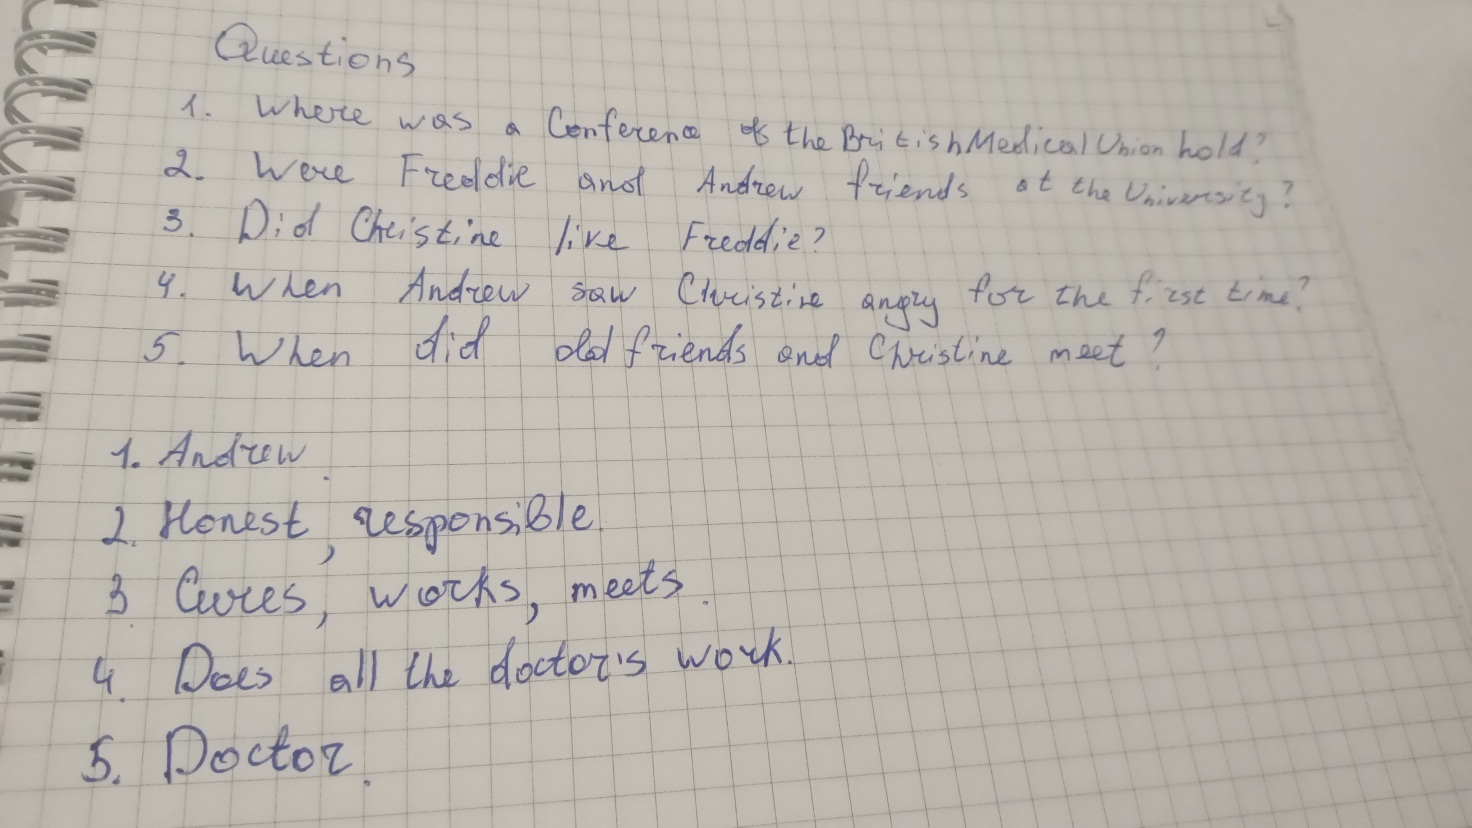 Questions
1. Where was a Conference of the British Medical Union hold?
2. Were Freddie and Andrew friends at the University?
3. Did Christine like Freddie?
4. When Andrew saw Christine angry for the first time?
5. When did old friends and Christine meet?
1. Andrew.
2. Honest, responsible.
3. Cures, works, meets.
4. Does all the doctor's work.
5. Doctor.